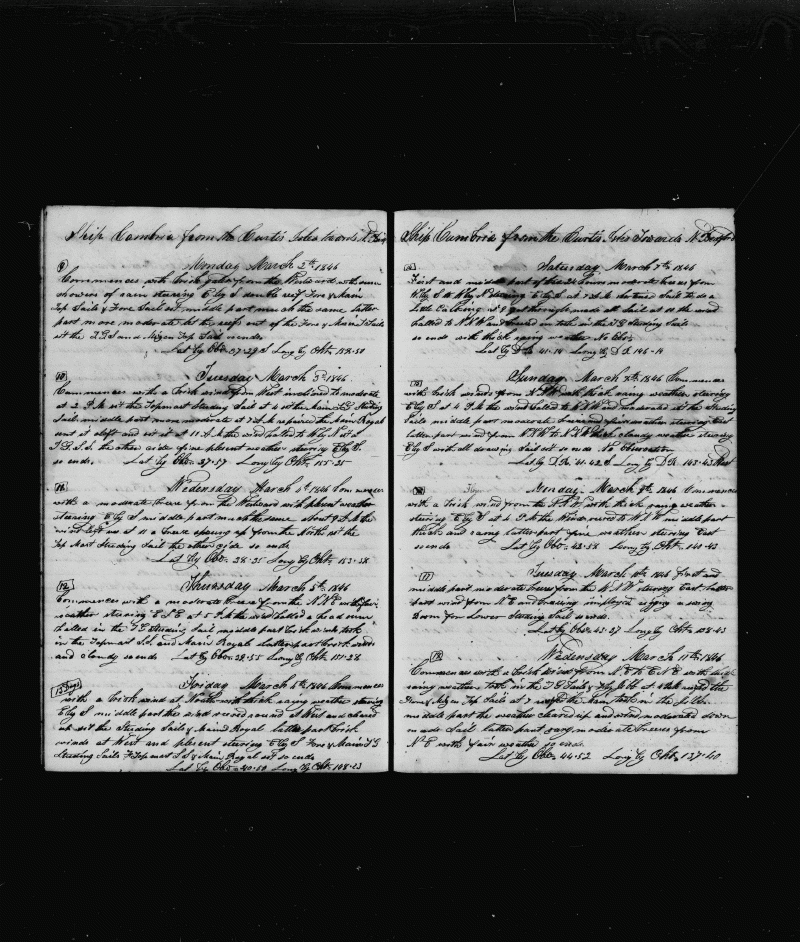 Ship Cambria from the Curtis Isles towards N. 
9
Monday March 2th 1846
Commences with brisk gales from the Westward with some
showers of rain steering E by S double reef Fore & Main
Top Sails & Fore Sail set middle part much the same latter
part more moderate let the reefs out of the Fore & Main T Sails
set the T.G.S and Mizen Top Sail so ends
Lat by Obs. 37-29 S Long by Cht. 158-50
10
Tuesday March 3d 1846
Commences with a brisk wind from West inclined to moderate
at 2 P.M set the Topmast Steading Sail at 4 set the Main T.G Steding
Sail middle part more moderate at 7 A.M repaired the Main Royal
sent it aloft and set it at 11 A.M the wind hauled to W by N set a
T.G.S.S. the other side fine plesent weather steering E by S.
so ends. Lat by Obs 37-57 Long by Cht. 155-25
11
Wedensday March 4th 1846 Commences
with a moderate breeze from the Westward with plesent weather
stearing E by S middle part much the same about 9 A.M the
wind left us at 11 a breeze sprung up from the North set the
Top Mast Steading Sail the other side so ends
Lat by Obs. 38-35 Long by Cht. 153-38
12
Thursday March 5th 1846
Commences with a moderate breeze from the N.N.E with
weather stearing E S E at 5 P.M the wind hauled a head some
hauled in the T.G Steading Sail middle part brisk winds took
in the Topmast S.S. and Main Royal latter part brisk winds
and cloudy so ends Lat by Obs. 38-55 Long by Cht. 151-28
13 Days
Friday March 6th 1846 Commences
with a brisk wind at North with thick rainy weather stearing
E by S middle part the wind veered round at West and cleared
up set the Steading Sails & Main Royal latter part brisk
winds at West and plesent stearing E by S Fore & Main T.G
Steading Sails & Topmast S.S & Main Royal set so ends
Lat by Obs. 40-50 Long by Cht. 148-23
Ship Cambria from the Curtis Isles Towards N. 
Saturday March 7th 1846
First and middle part of these 24 hours moderate breezes from
W by S to W by N steering E by S at 7 A.M shortned Sail to do a
Little at 8 got through made all Sail at 10 the wind
hauled to N N W and braced in took in the T G Steading Sails
so ends with thick rainy weather No Obs.
Lat by D.R. 41-14 Long by D.R. 146-14
15
Sunday March 8th 1846 Commences
with brisk winds from N N W with thick rainy weather steering
E by S at 4 P.M the wind hauled to N W and moderated set the Steading
Sails middle part moderate breezes and fair weather steering East
latter part wind from N.N.W to N.N.W thick cloudy weather steering
E by S with all drawing Sail set so ends No Observation
Lat by D.R. 41-42 S Long by D.R. 143-43 West
16
Monday March 9th 1846 Commences
with a brisk wind from the N.W. with thick rainy weather
steering E by S at 4 P.M the Wind veered to W.S.W middle part
thick and rainy latter part fine weather steering East
so ends Lat by Obs. 42-58 Long by Cht. 141-43
17
Tuesday March 10th 1846 First and
middle part moderate breezes from the W.S.W steering East. latter
part wind from N.E and braced in employed a swing
Boom for Lower Steading Sail so ends.
Lat by Obs. 43-27 Long by Cht. 138-43
18
Wedensday March 11th 1846
Commences with a brisk wind from N.E to E.N.E with thick
rainy weather took in the T G Sails & Fly Jibb at 12 M reefed the
Fore & Mizen Top Sails at 7 reefed the Main took in the Jibb
middle part the weather cleared up and wind moderated down
made Sail latter part very moderate breezes from
N E with fair weather so ends
Lat by Obs. 44-52 Long by Cht. 137-40